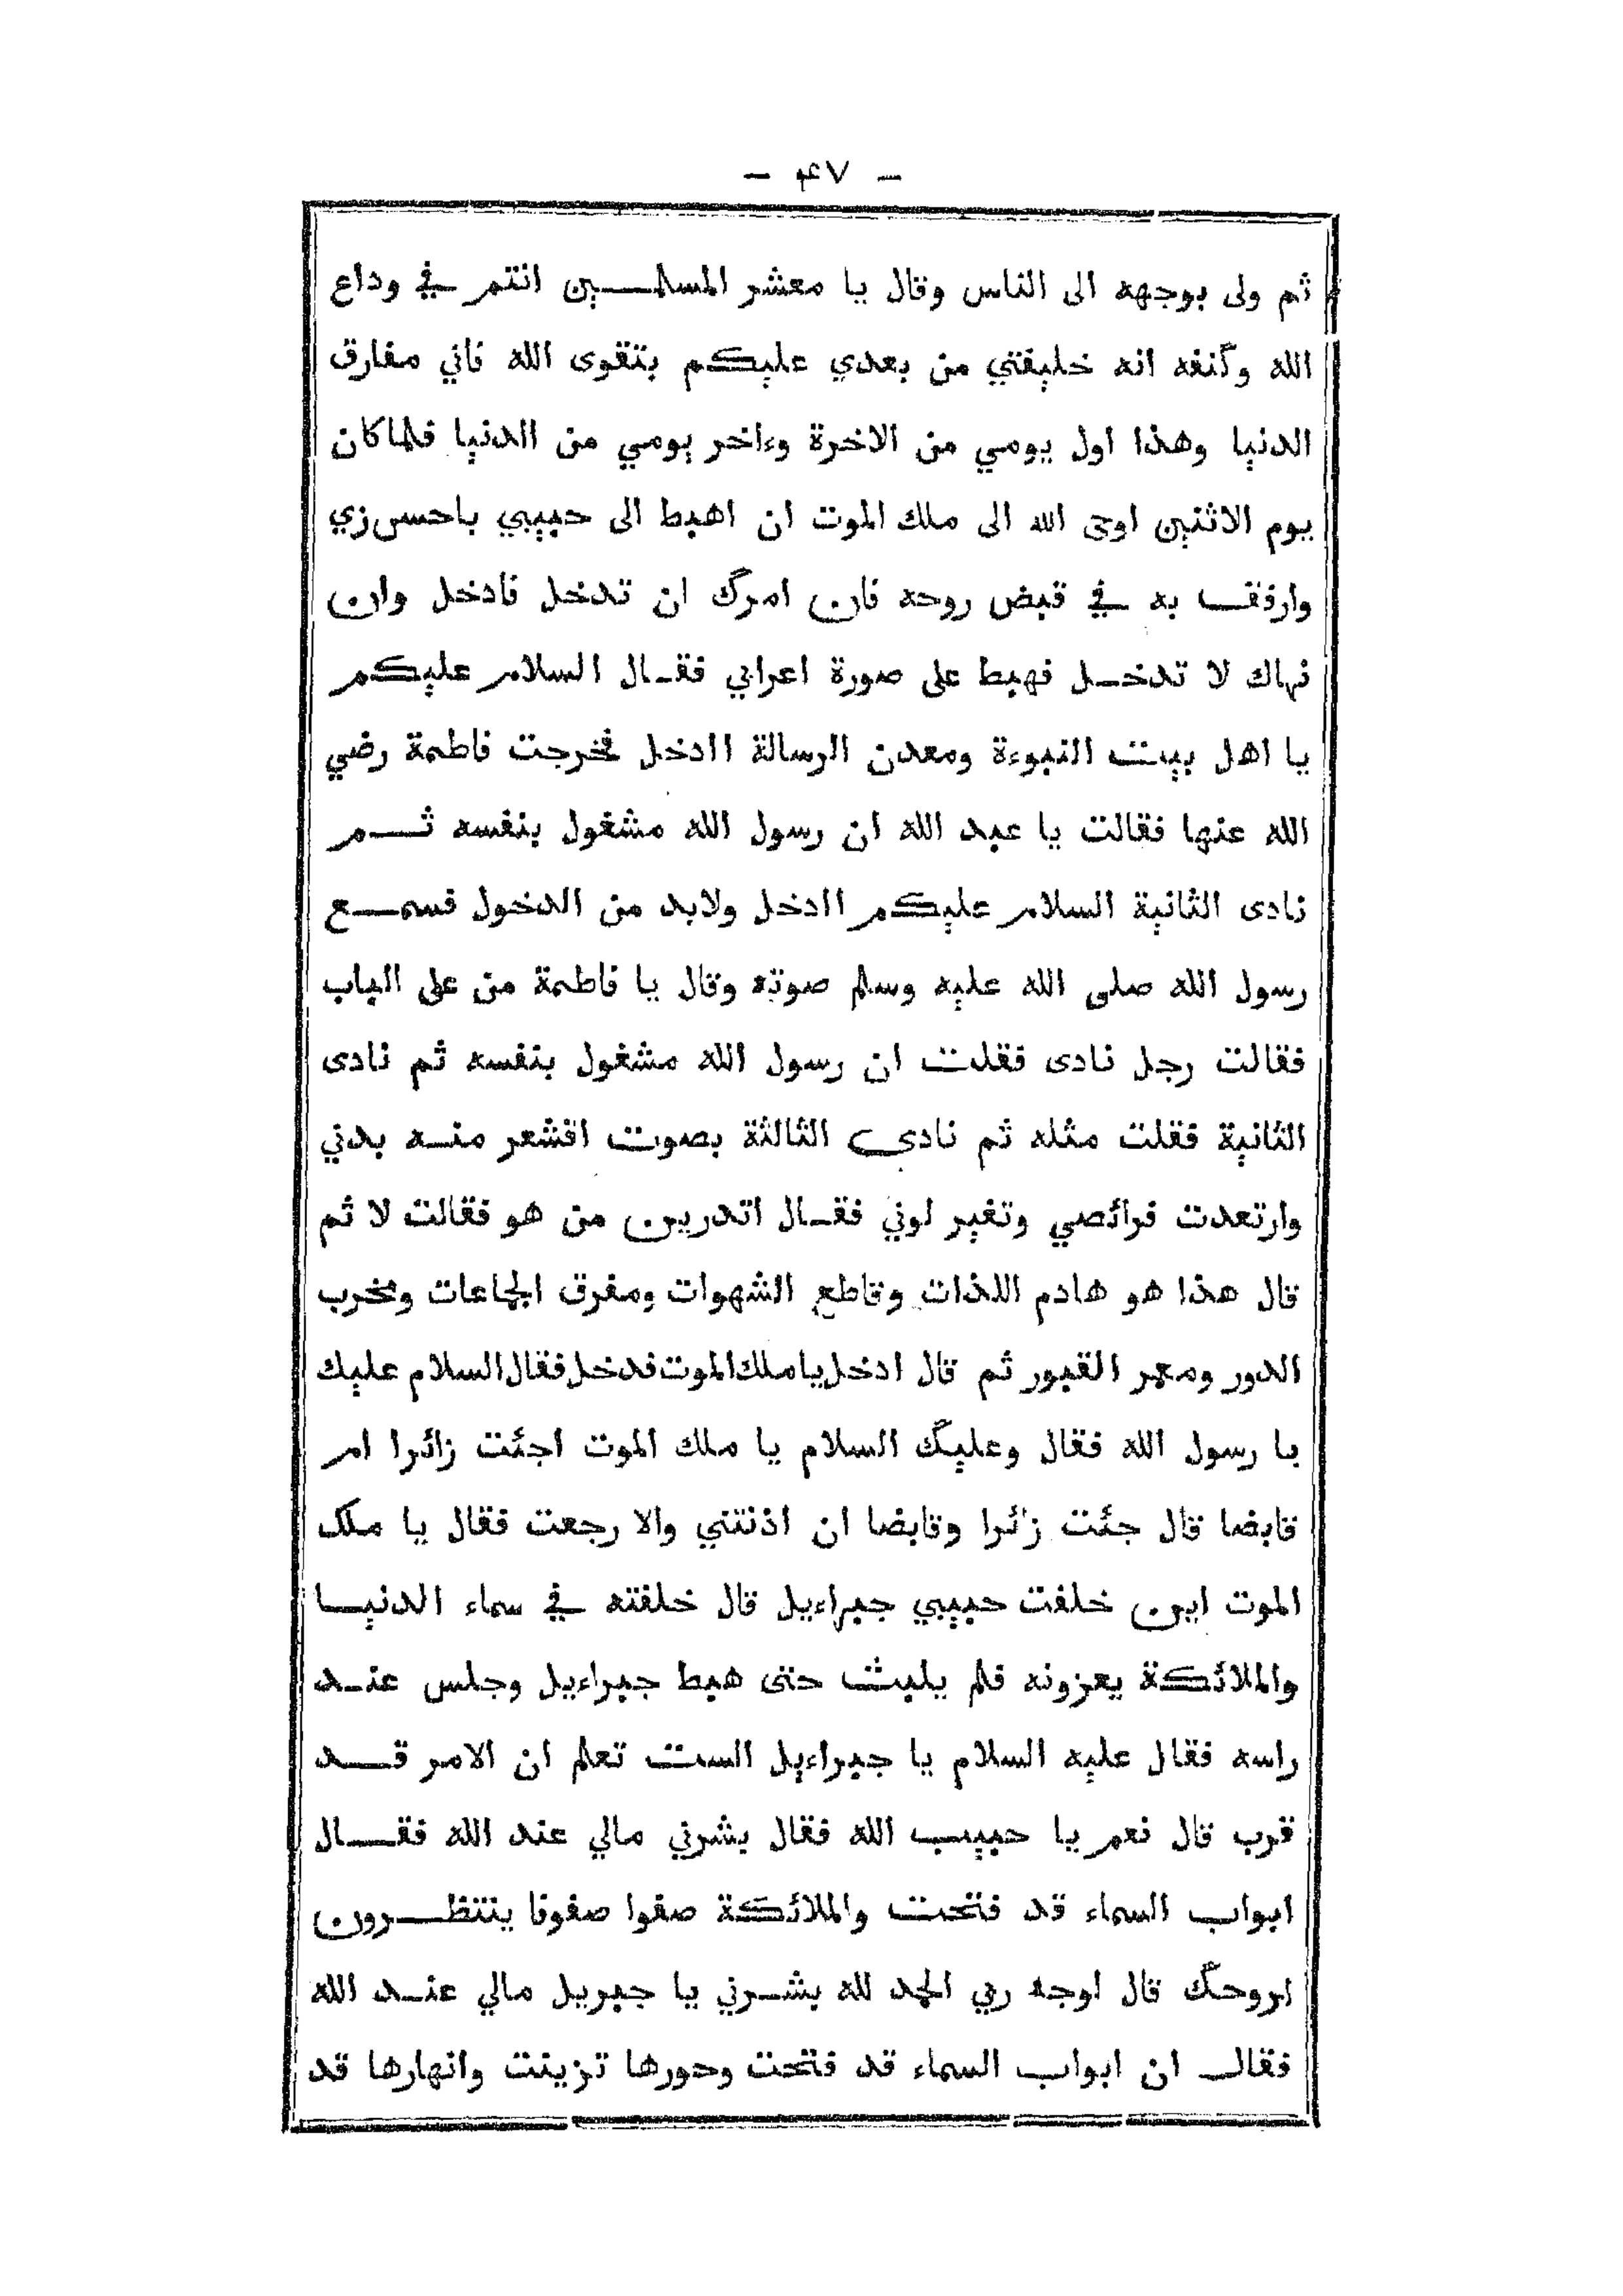 - ٤٧ -
ثم ولى بوجهه الى الناس وقال يا معشر المسلمين انتم في وداع
الله وكنفه انه خليفتي من بعدي عليكم بتقوى الله فاني مفارق
الدنيا وهذا اول يومي من الاخرة وءاخر يومي من الدنيا فلما كان
يوم الاثنين اوحى الله الى ملك الموت ان اهبط الى حبيبي باحسن زي
وارفق به في قبض روحه فان امرك ان تدخل فادخل وان
نهاك لا تدخل فهبط على صورة اعرابي فقال السلام عليكم
يا اهل بيت النبوءة ومعدن الرسالة اادخل فخرجت فاطمة رضي
الله عنها فقالت يا عبد الله ان رسول الله مشغول بنفسه ثم
نادى الثانية السلام عليكم اادخل ولابد من الدخول فسمع
رسول الله صلى الله عليه وسلم صوته وقال يا فاطمة من على الباب
فقالت رجل نادى فقلت ان رسول الله مشغول بنفسه ثم نادى
الثانية فقلت مثله ثم نادى الثالثة بصوت اقشعر منه بدني
وارتعدت فرائصي وتغير لوني فقال اتدرين من هو فقالت لا ثم
قال هذا هو هادم اللذات وقاطع الشهوات ومفرق الجماعات ومخرب
الدور ومعمر القبور ثم قال ادخل يا ملك الموت فدخل فقال السلام عليك
يا رسول الله فقال وعليك السلام يا ملك الموت اجئت زائرا ام
قابضا قال جئت زائرا وقابضا ان اذنتني والا رجعت فقال يا ملك
الموت اين خلفت حبيبي جبراءيل قال خلفته في سماء الدنيا
والملائكة يعزونه فلم يلبث حتى هبط جبراءيل وجلس عند
راسه فقال عليه السلام يا جبراءيل الست تعلم ان الامر قد
قرب قال نعم يا حبيب الله فقال بشرني مالي عند الله فقال
ابواب السماء قد فتحت والملائكة صفوا صفوفا ينتظرون
لروحك قال لوجه ربي الحمد لله بشرني يا جبريل مالي عند الله
فقال ان ابواب السماء قد فتحت وحورها تزينت وانهارها قد